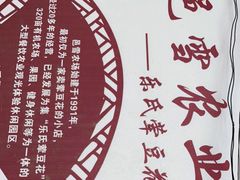 邑雪农业
—乐氏荤豆花
邑雪农场始建于1991年，
最初仅为一家卖荤豆花的小店，
过20多年的经营，已经发展为集“乐氏荤豆花”
320亩有机农场、果园、健身休闲等为一体的
大型餐饮农业观光体验休闲园区。